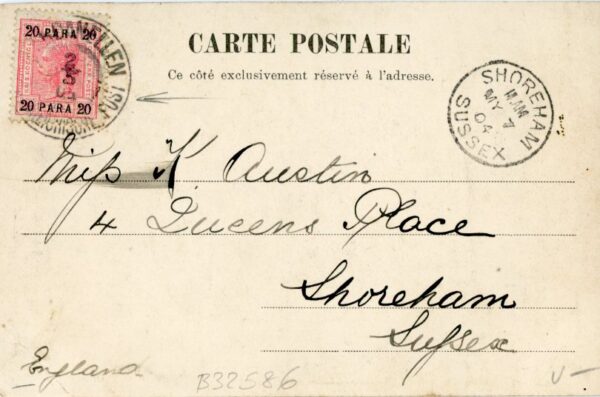 20 PARA 20
20 PARA 20
DARDANELLEN
CARTE POSTALE
Ce côté exclusivement réservé à l'adresse.
SHOREHAM
MY 7
04
SUSSEX
Miſs K. Austin
4 Queens Place
Shoreham
Suſsex
England
B32586